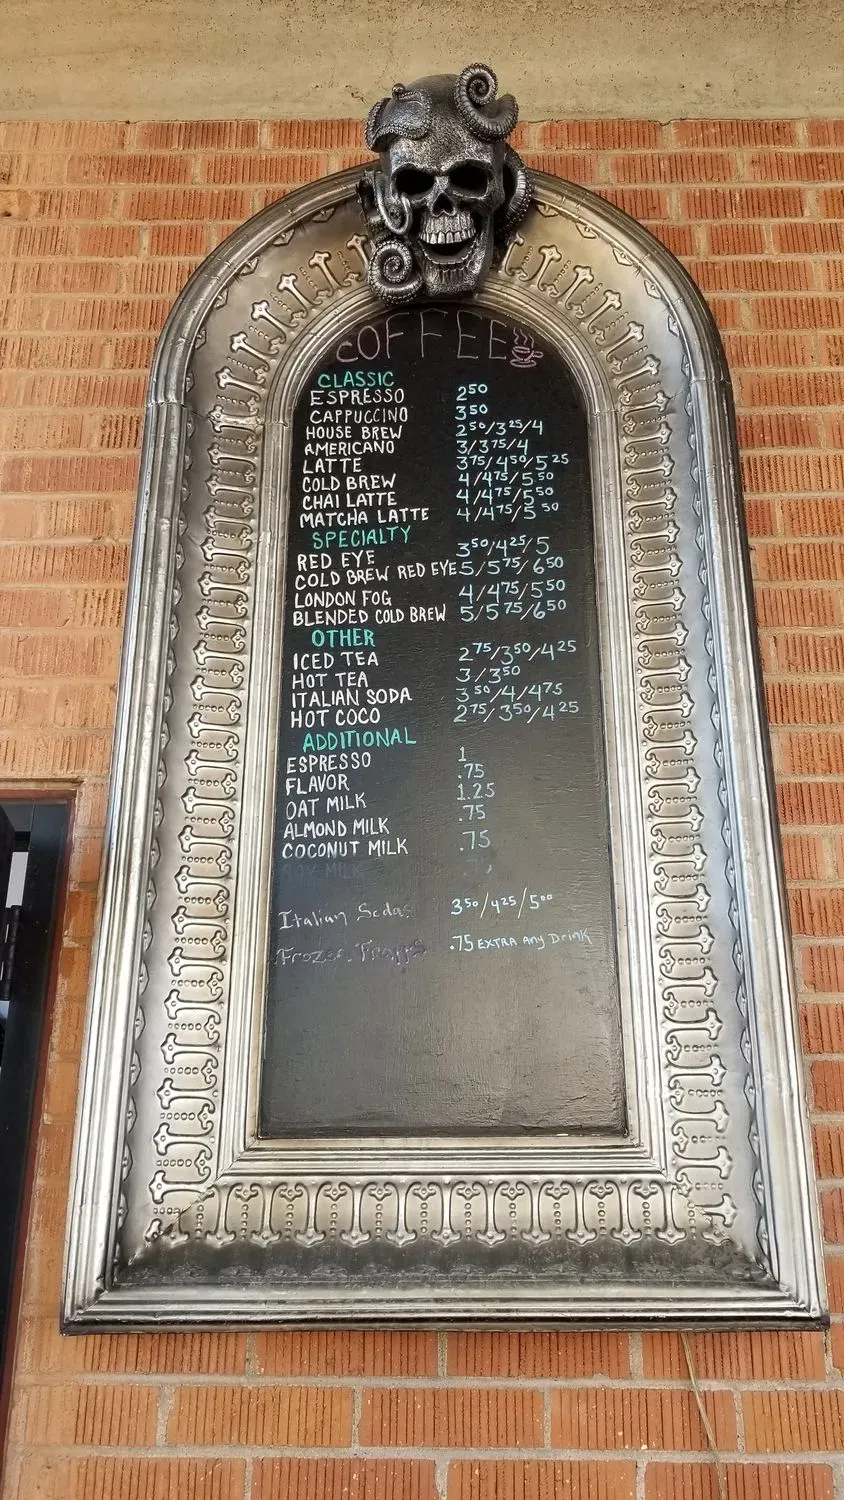 COFFEE
CLASSIC
ESPRESSO 2 50
CAPPUCCINO 3 50
HOUSE BREW 2 50/3 25/4
AMERICANO 3/3 75/4
LATTE 3 75/4 50/5 25
COLD BREW 4/4 75/5 50
CHAI LATTE 4/4 75/5 50
MATCHA LATTE 4/4 75/5 50
SPECIALTY
RED EYE 3 50/4 25/5
COLD BREW RED EYE 5/5 75/6 50
LONDON FOG 4/4 75/5 50
BLENDED COLD BREW 5/5 75/6 50
OTHER
ICED TEA 2 75/3 50/4 25
HOT TEA 3/3 50
ITALIAN SODA 3 50/4/4 75
HOT COCO 2 75/3 50/4 25
ADDITIONAL
ESPRESSO 1
FLAVOR .75
OAT MILK 1.25
ALMOND MILK .75
COCONUT MILK .75
SOY MILK .75
Italian Sodas 3 50/4 25/5 00
Frozen Frapps .75 EXTRA Any Drink